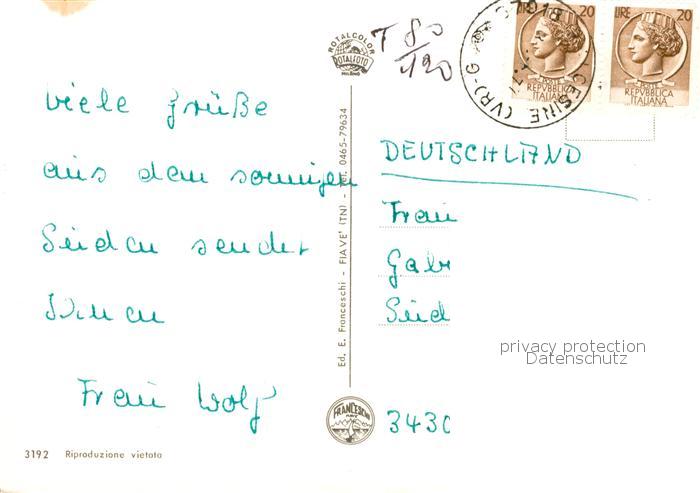 viele Grüße
aus dem sonnigen
Süden sendet
Ihnen
Frau Wolf
3192 Riproduzione vietata
ROTALCOLOR
ROTALFOTO
MILANO
Ed. E. Franceschi - FIAVE' (TN) - Tel. 0465-79634
FRANCESCHI
T 80
120
LIRE 20
20
POSTE
REPVBBLICA
ITALIANA
POSTE
REPVBBLICA
ITALIANA
CESINE (VR)
DEUTSCHLAND
Frau
Gabr
Seid
privacy protection
Datenschutz
3430